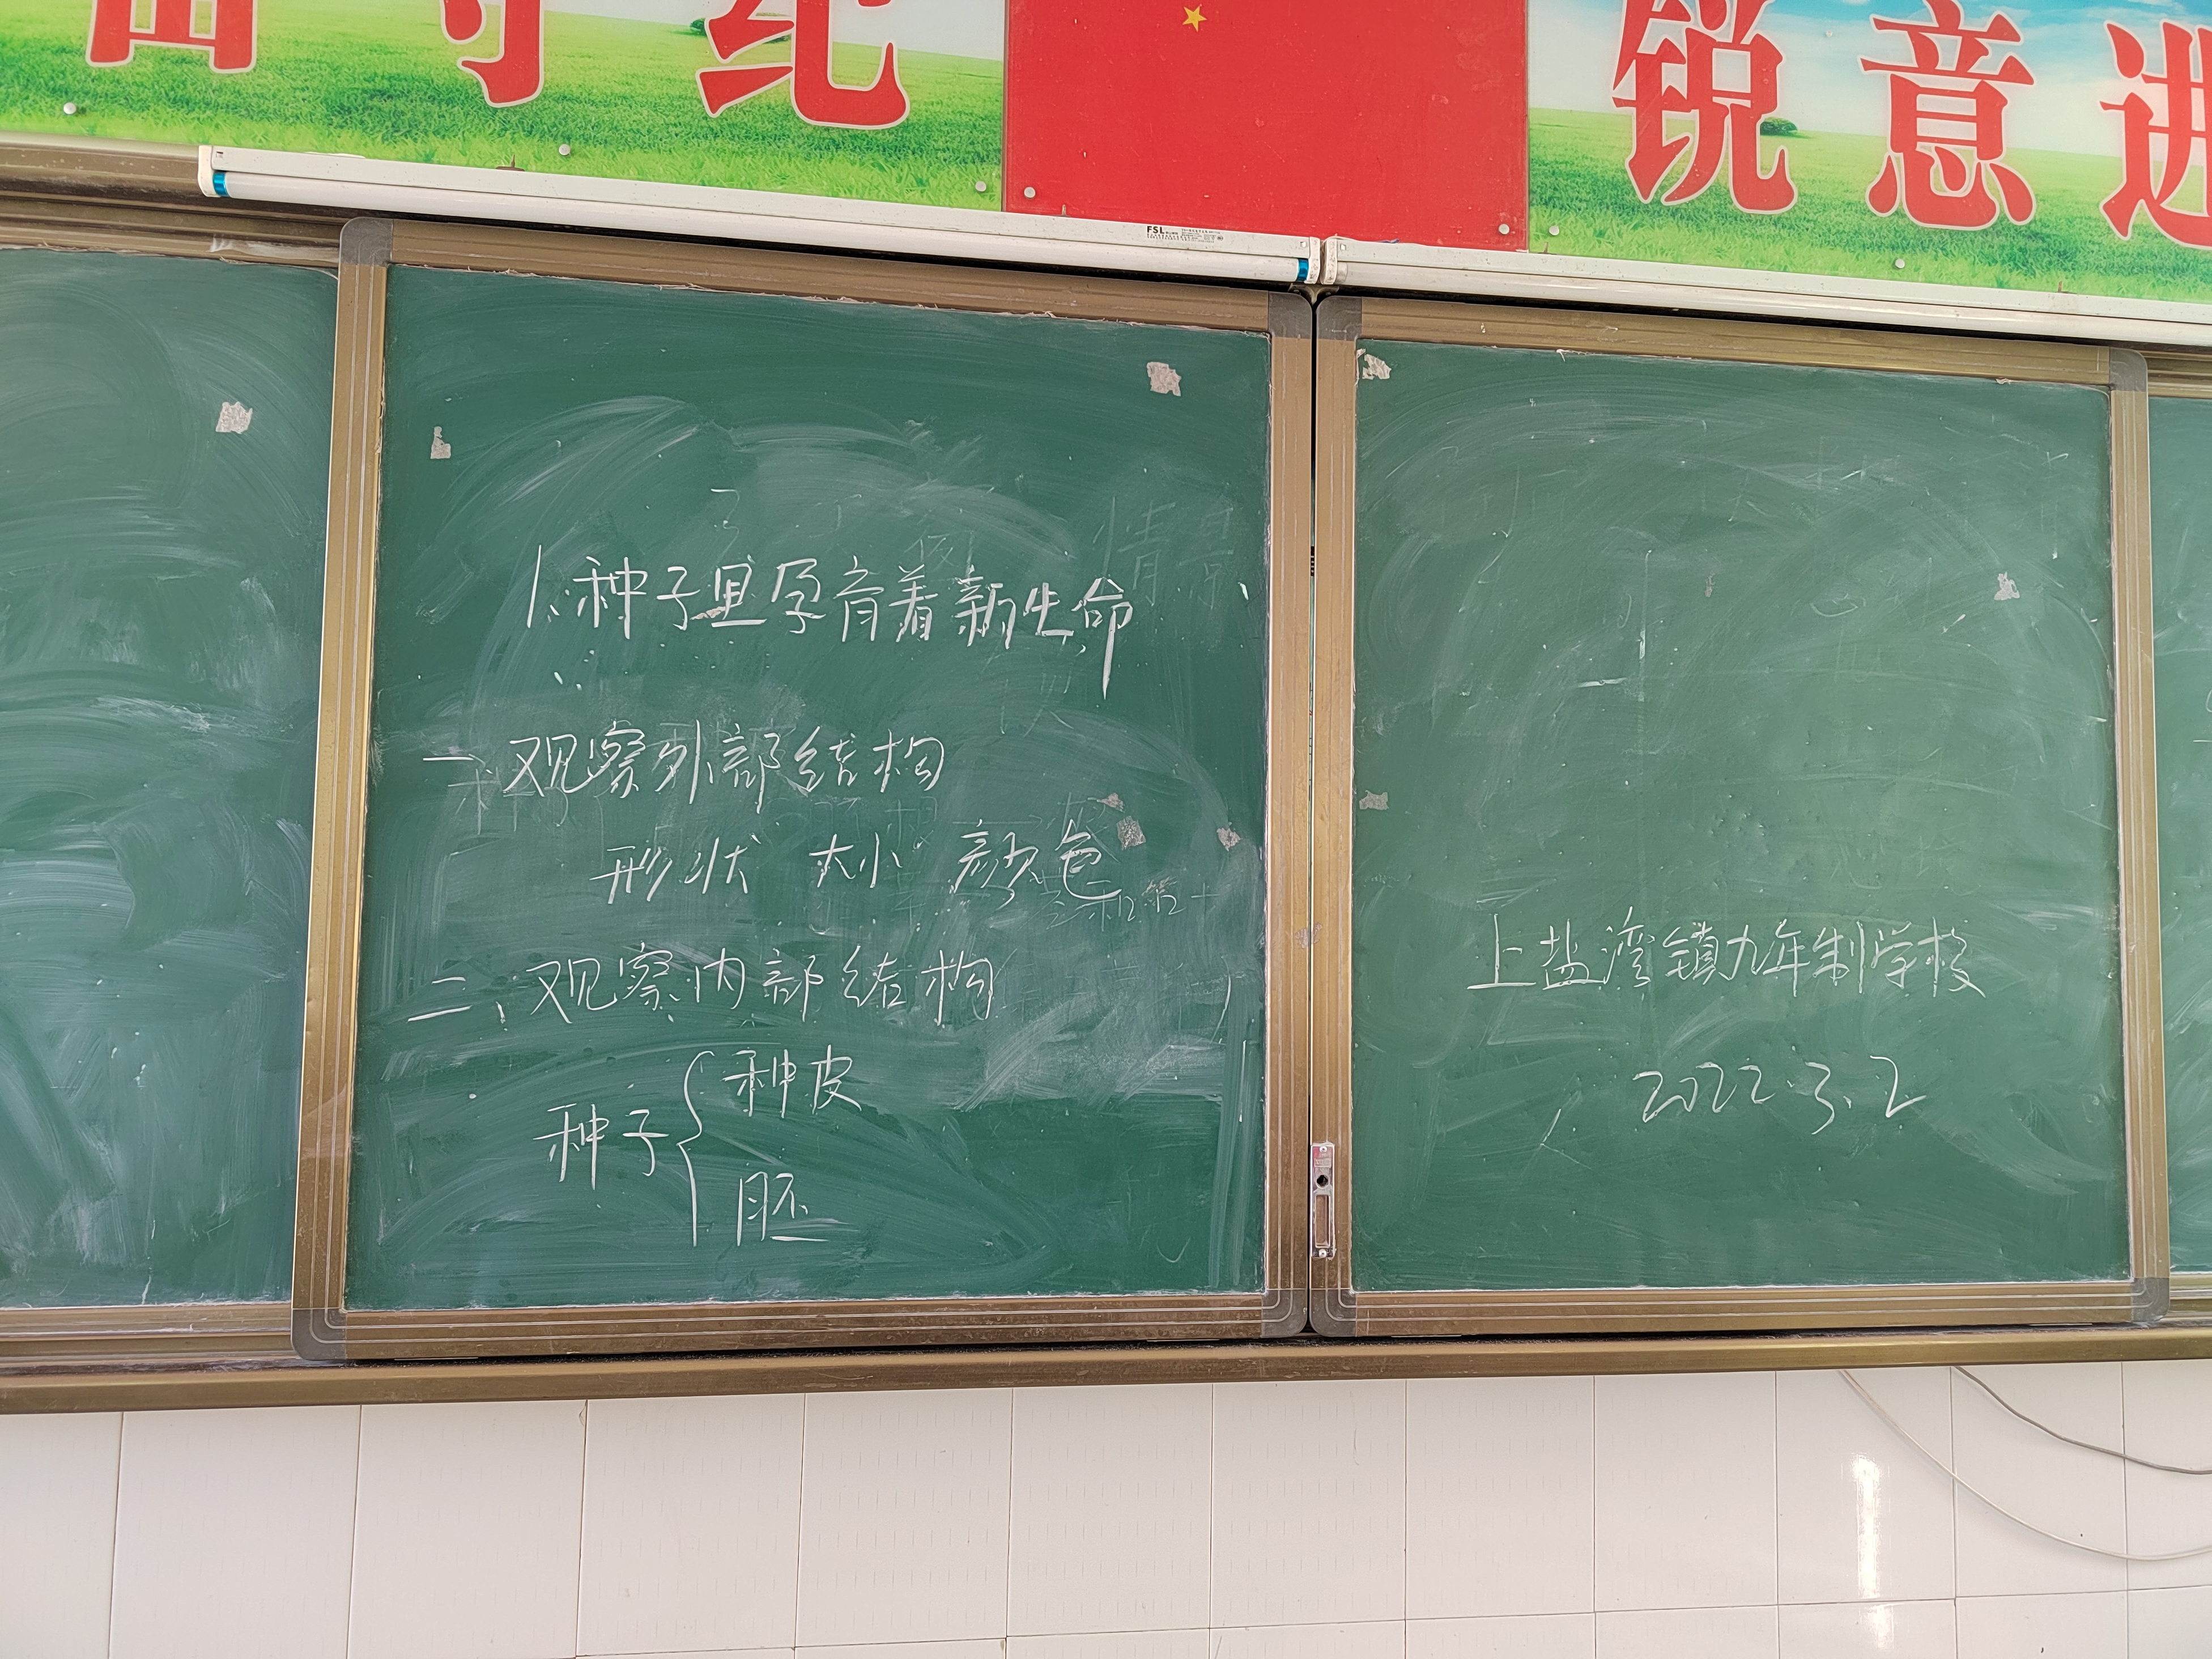 守纪
锐意进
FSL
1.种子里孕育着新生命
一、观察外部结构
形状 大小 颜色
二、观察内部结构
种子{种皮
胚
上盐湾镇九年制学校
2022.3.2